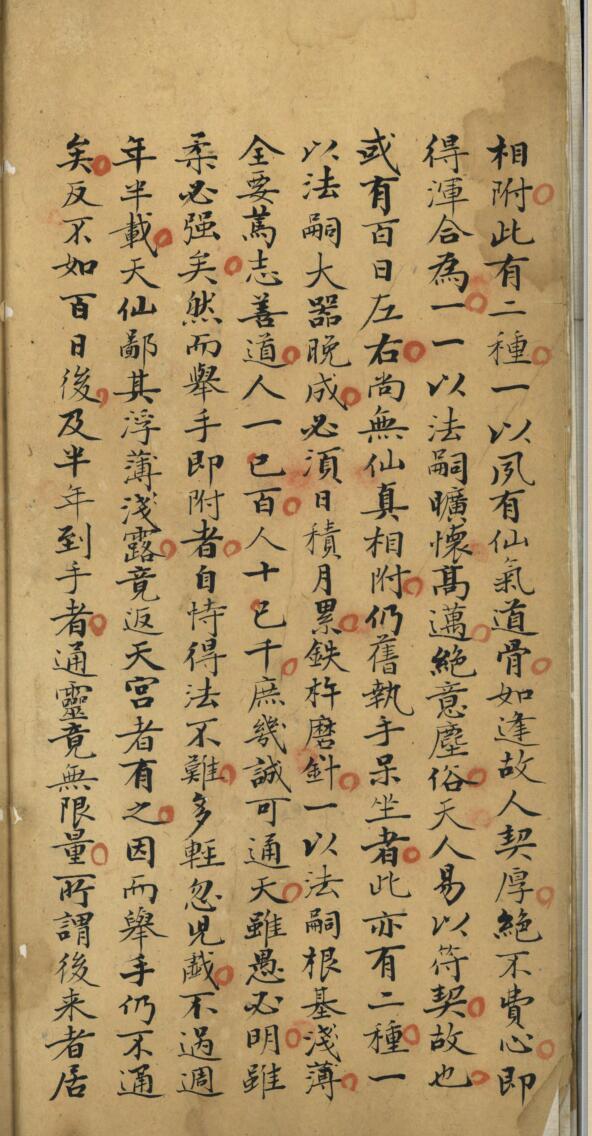 相附此有二種一以夙有仙氣道骨如逢故人契厚絶不費心即
得渾合為一一以法嗣曠懷髙邁絶意塵俗天人易以符契故也
或有百日左右尚無仙真相附仍舊執手呆坐者此亦有二種一
以法嗣大器晚成必須日積月累鉄杵磨針一以法嗣根基淺薄
全要篤志善道人一己百人十己千庶幾誠可通天雖愚必明雖
柔必强矣然而舉手即附者自恃得法不難多輕忽児戯不過週
年半載天仙鄙其浮薄淺露竟返天宫者有之因而舉手仍不通
矣反不如百日後及半年到手者通靈竟無限量所謂後来者居